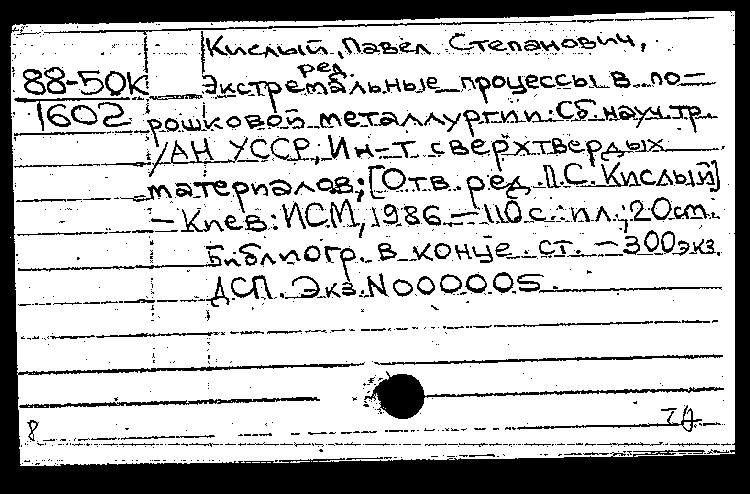 Кислый, Павел Степанович,
ред.
88-50К Экстремальные процессы в по-
1602 рошковой металлургии: Сб. науч. тр.
/АН УССР, Ин-т сверхтвердых
материалов; [Отв. ред. П.С. Кислый]
– Киев: ИСМ, 1986. – 110 с.: ил.; 20 см.
Библиогр. в конце ст. – 300 экз.
ДСП. Экз. N000005.
8